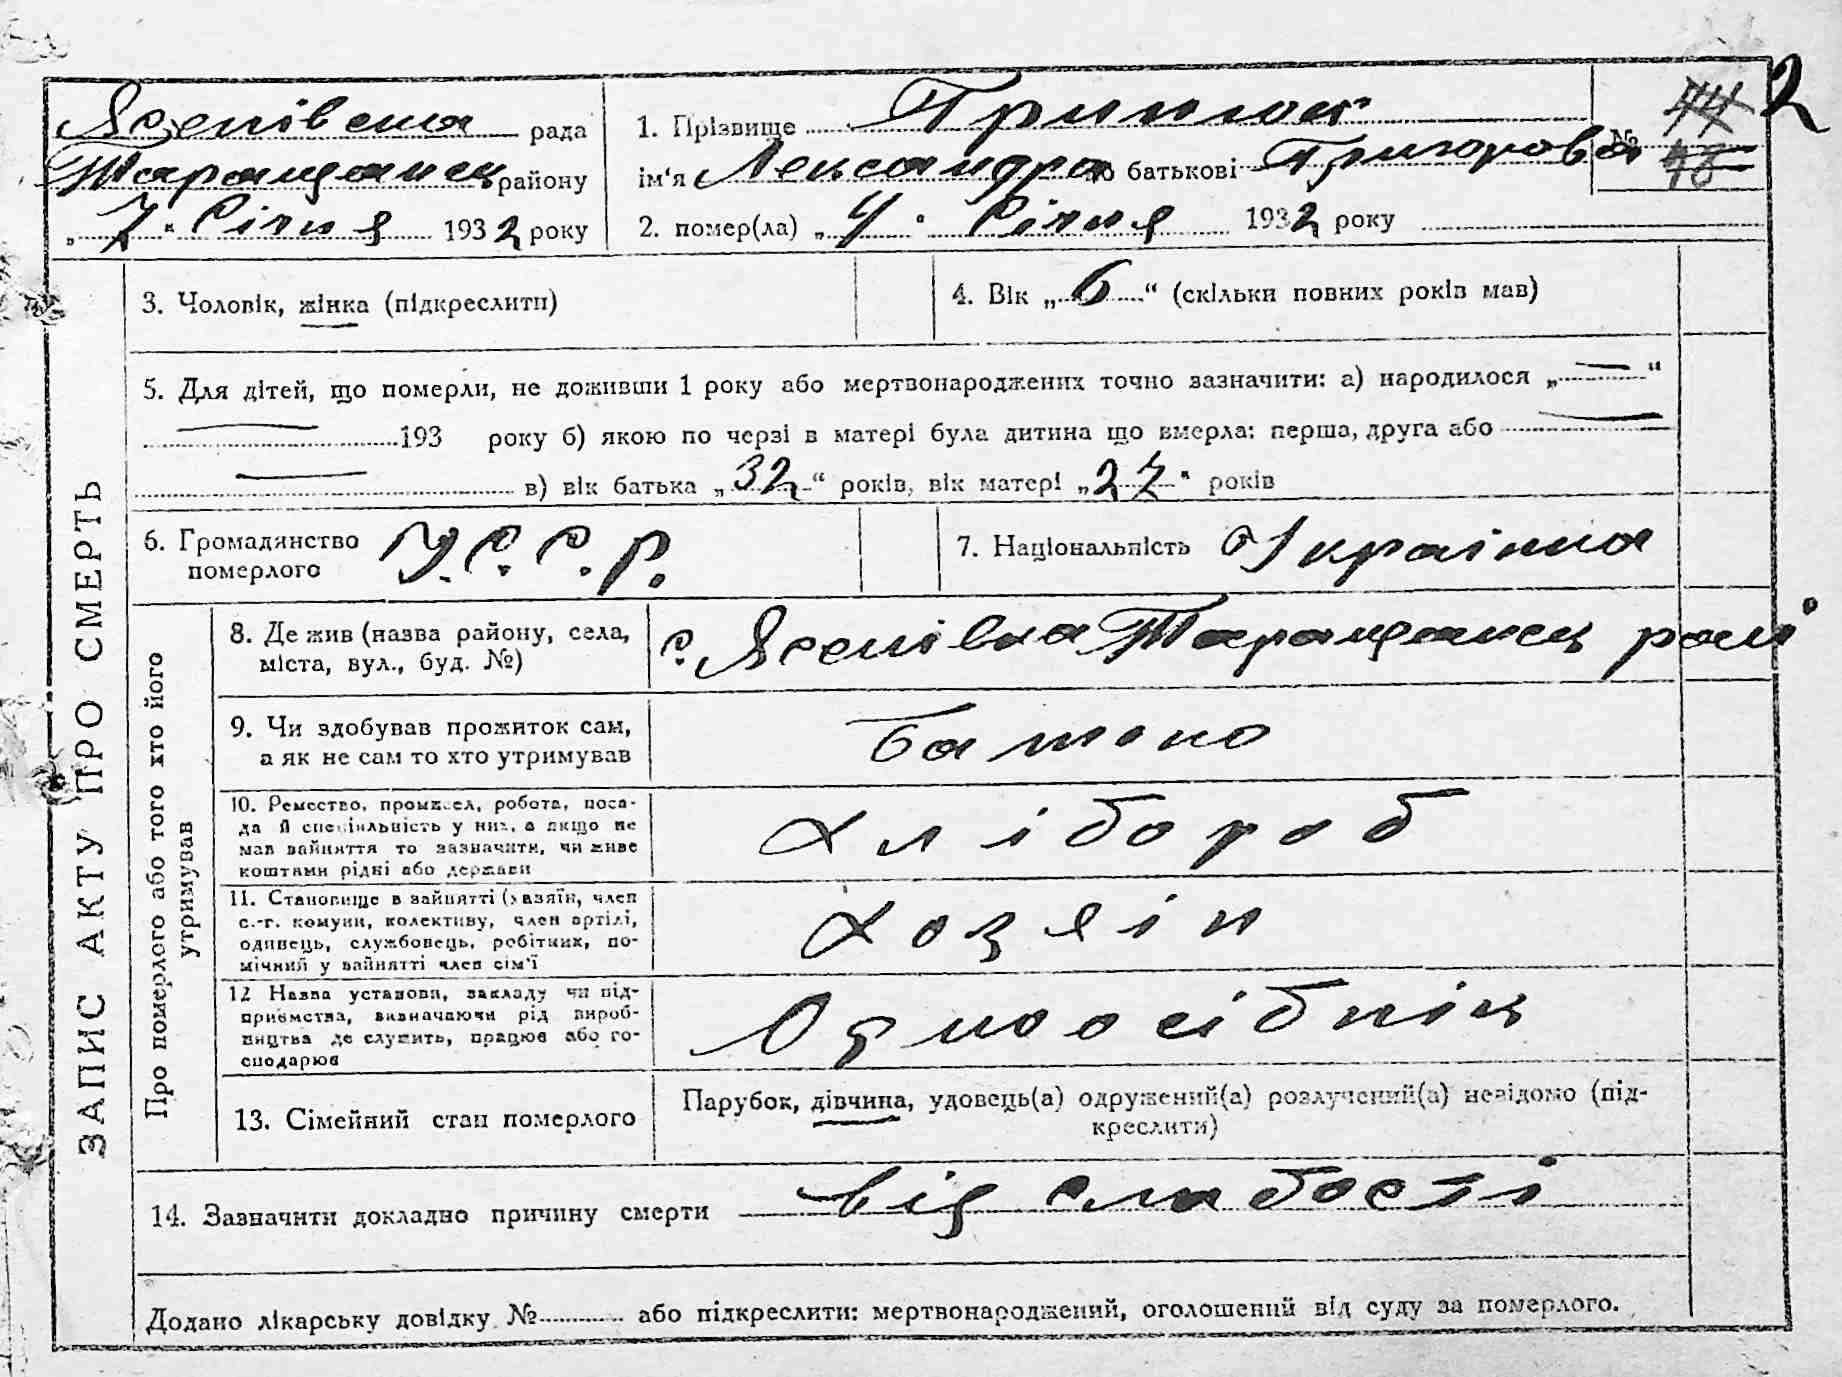 Ясенівська рада
Таращанськ району
„ 7 “ Січня 1932 року
1. Прізвище Гринюк
ім‘я Лександра по батькові Григорова
2. помер(ла) „ 4 “ Січня 1932 року
№ 48
2
ЗАПИС АКТУ ПРО СМЕРТЬ
3. Чоловік, жінка (підкреслити)
4. Вік „ 6 “ (скільки повних років мав)
5. Для дітей, що померли, не доживши 1 року або мертвонароджених точно зазначити: а) народилося „ — “
— 193 року б) якою по черзі в матері була дитина що вмерла: перша, друга або —
— в) вік батька „ 32 “ років, вік матері „ 27 “ років
6. Громадянство
померлого
У.С.С.Р.
7. Національність Українка
Про померлого або того хто його
утримував
8. Де жив (назва району, села,
міста, вул., буд. №)
с. Ясенівка Таращанськ
9. Чи здобував прожиток сам,
а як не сам то хто утримував
Батько
10. Ремество, промисел, робота, поса-
да й спеціяльність у них, а якщо не
мав зайняття то зазначити, чи живе
коштами рідні або держави
Хлібороб
11. Становище в зайнятті (хазяїн, член
с.-г. комуни, колективу, член артілі,
одинець, службовець, робітник, по-
мічний у зайнятті член сім‘ї
Хозяін
12 Назва установи, закладу чи під-
приємства, визначаючи рід вироб-
ництва де служить, працює або го-
сподарює
Одноосібнік
13. Сімейний стан померлого
Парубок, дівчина, удовець(а) одружений(а) розлучений(а) невідомо (під-
креслити)
14. Зазначити докладно причину смерти від слабості
Додано лікарську довідку № або підкреслити: мертвонароджений, оголошений від суду за померлого.